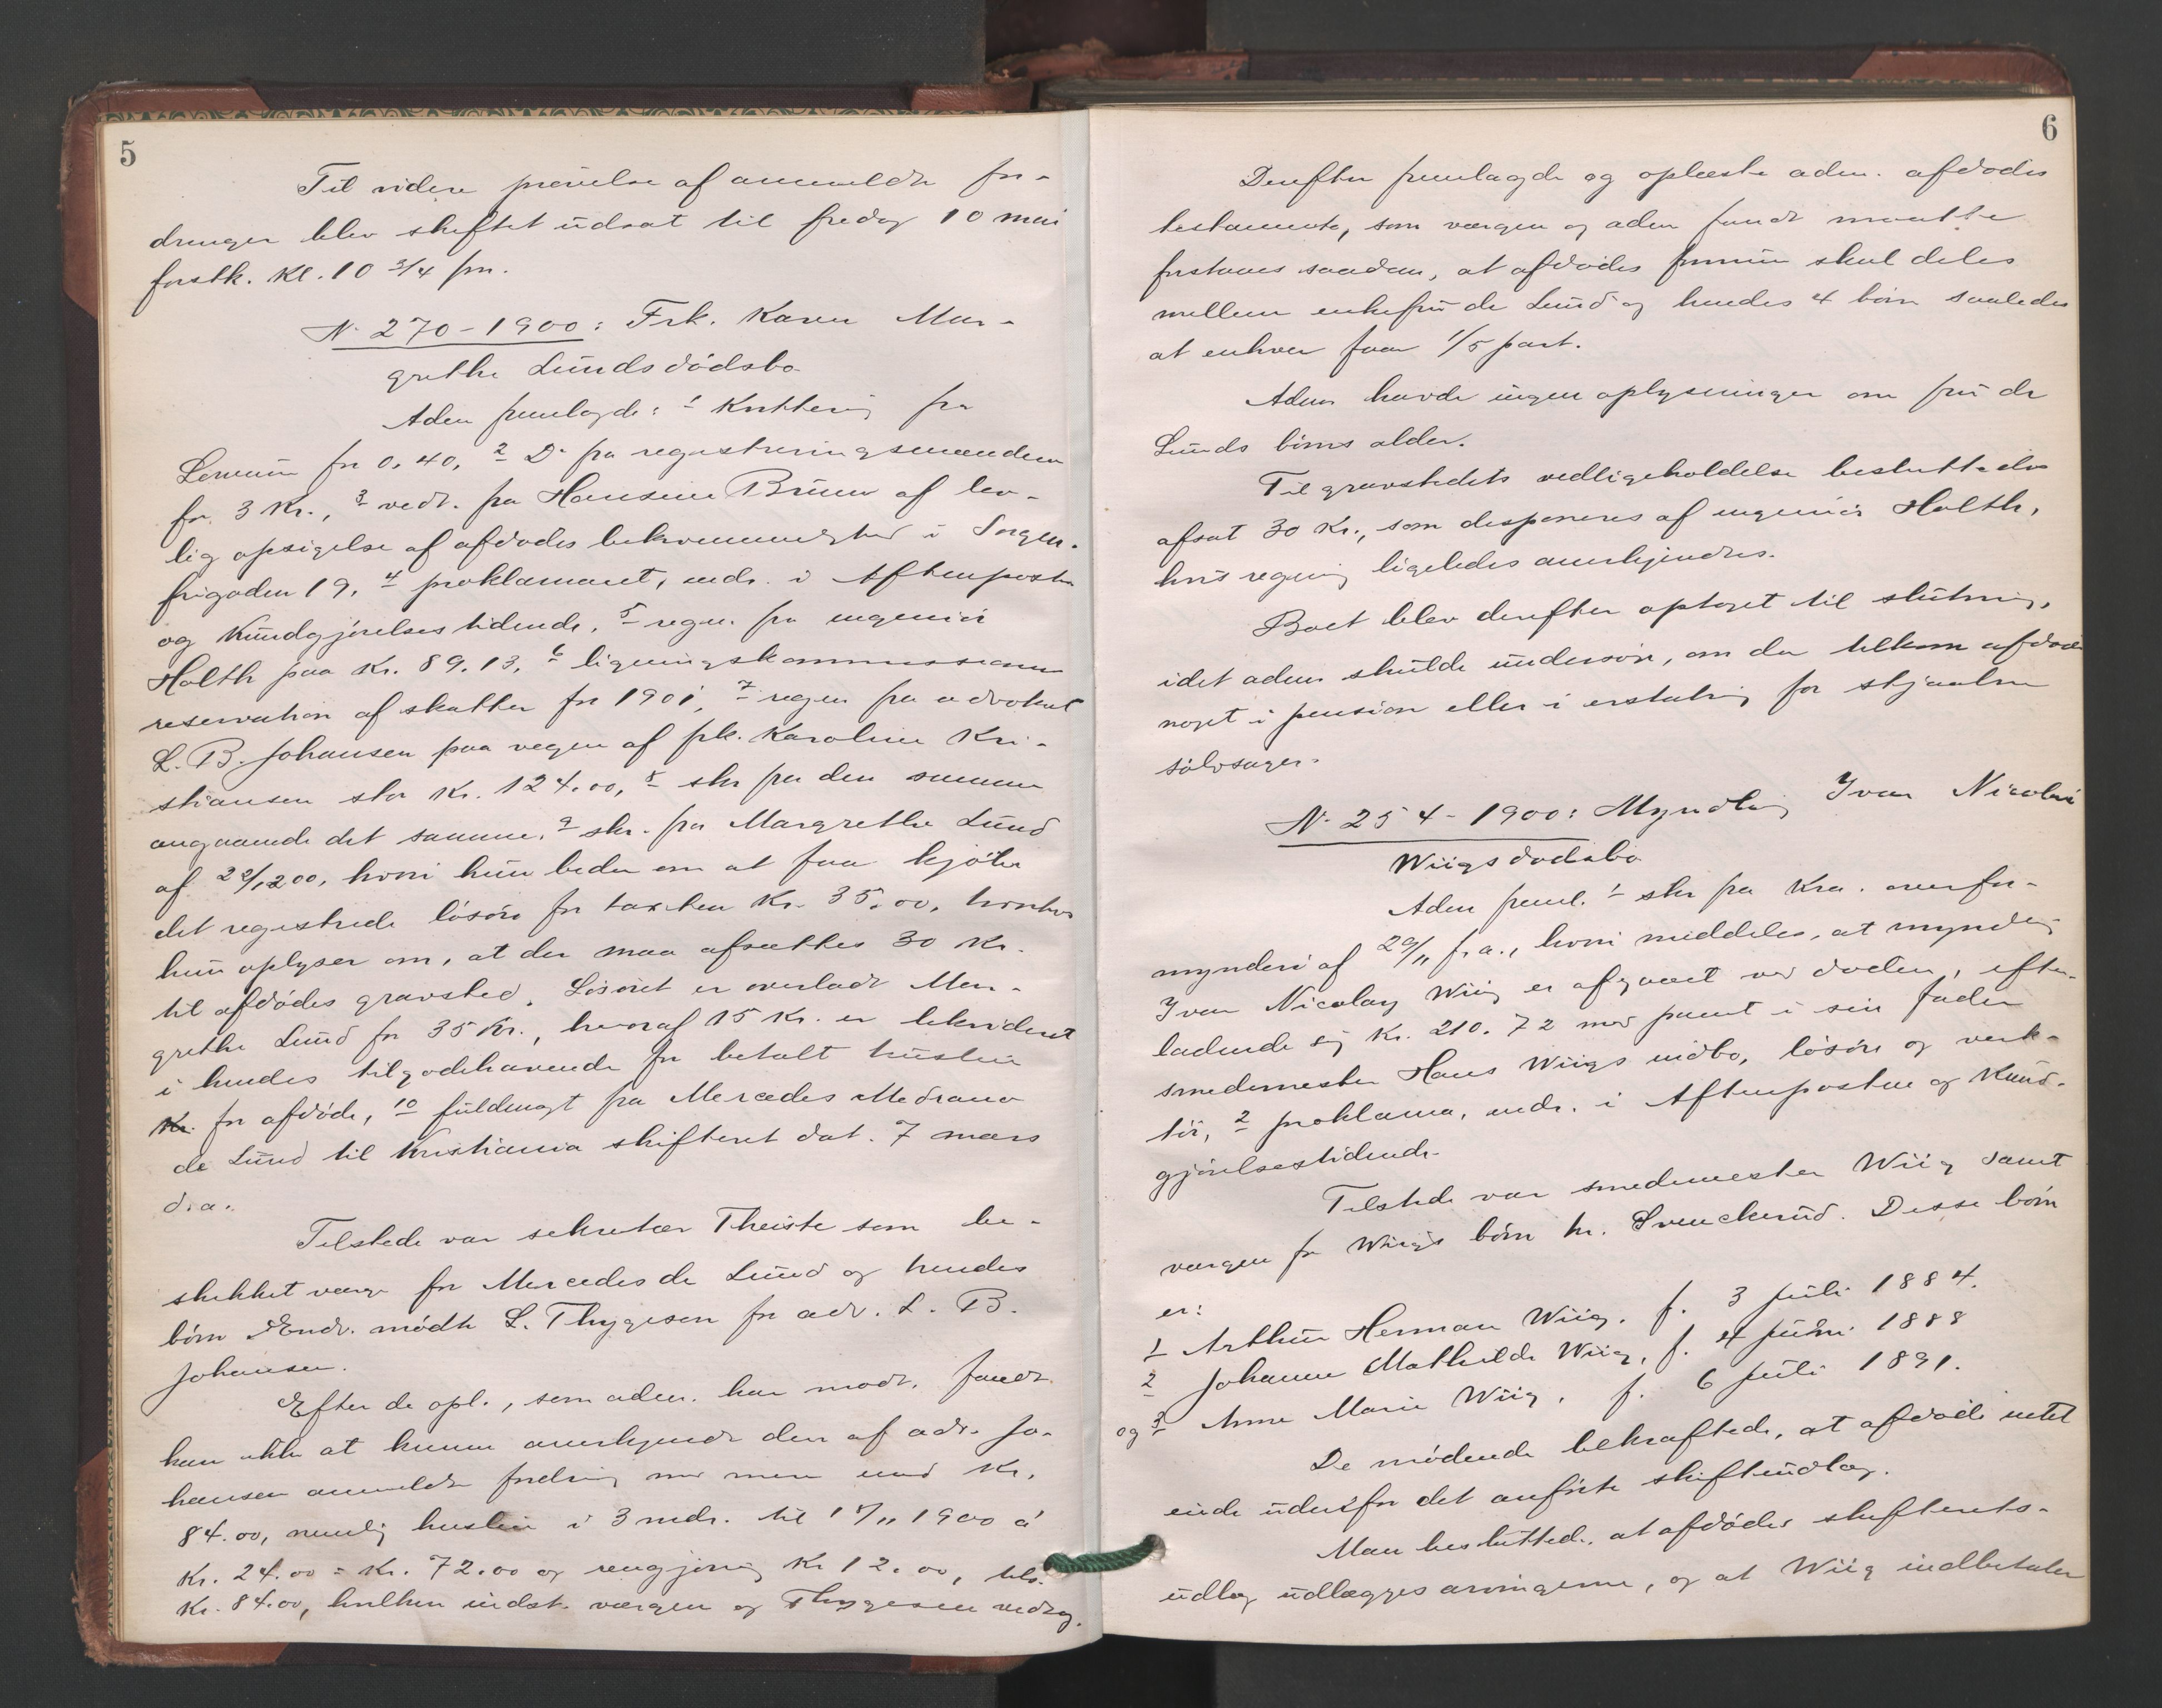 5
Til videre prøvelse af anmeldte for-
dringer blev skiftet udsat til fredag 10 mai
forstk. Kl. 10 3/4 fm.
N. 270 - 1900: Frk. Karen Mar-
grethe Lunds dødsbo
Adm fremlagde: 1 Kvittering fra
for 0,40, 2 Do fra registreringsmændene
for 3 Kr., 3 vedt. fra Hansine Bruun af lov-
lig opsigelse af afdødes bekvemmelighed i Sorgen-
frigaden 19, 4 proklamaet, indr. i Aftenposten
og Kundgjørelsestidende, 5 regn. fra ingeniør
Holth paa Kr. 89.13, 6 ligningskommissionens
reservation af skatter for 1901, 7 regn fra advokat
L. B. Johansen paa vegne af frk. Karoline Kri-
stiansen stor Kr. 124.00, 8 skr fra den samme
angaaende det samme, 9 skr. fra Margrethe Lund
af 22/12 00, hvori hun beder om at faa kjøbe
det registrede løsøre for taxten Kr. 35.00, hvorhos
hun oplyser om, at der maa afsættes 30 Kr.
til afdødes gravsted. Løsøret er overladt Mar-
grethe Lund for 35 Kr., hvoraf 15 Kr. er likvideret
i hendes tilgodehavende for betalt husleie
Kr. for afdøde, 10 fuldmagt fra Mercedes Medrano
de Lund til Kristiania skifteret dat. 7 mars
d.a.
Tilstede var sekretær Theiste som be-
skikket værge for Mercedes de Lund og hendes
børn Endv. mødte L. Thygesen for adv. L. B.
Johansen.
Efter de opl., som adm. har modt. fandt
han ikke at kunne anerkjende den af adv. Jo-
hansen anmeldte fordring med mere end Kr.
84.00, nemlig husleie i 3 mdr. til 17/11 1900 á
Kr. 24.00 = Kr. 72.00 og rengjøring Kr 12.00, tils.
Kr. 84.00, hvilken indst. værgen og Thygesen vedtog.
6
Derefter fremlagde og oplæste adm. afdødes
testamente, som værgen og adm fandt maatte
forstaaes saadan, at afdødes formue skal deles
mellem enkefru de Lund og hendes 4 børn saaledes
at enhver faar 1/5 part.
Adm havde ingen oplysninger om fru de
Lunds børns alder.
Til gravstedets vedligeholdelse besluttedes
afsat 30 Kr., som disponeres af ingeniør Holth,
hvis regning ligeledes anerkjendtes.
Boet blev derefter optaget til slutning,
idet adm skulde undersøge, om der tilkom afdøde
noget i pension eller i erstatning for stjaalne
sølvsager.
N. 254 - 1900: Myndling Ivar Nicolai
Wiigs dødsbo
Adm freml. 1 skr fra Kra. overfor-
mynderi af 29/11 f.a., hvori meddeles, at myndling
Ivar Nicolay Wiig er afgaaet ved døden, efter-
ladende sig Kr. 210.72 mod pant i sin fader
smedemester Hans Wiigs indbo, løsøre og verk-
tøi, 2 proklama, indr. i Aftenposten og Kund-
gjørelsestidende.
Tilstede var smedemester Wiig samt
værgen for Wiigs børn hr. Svenckerud. Disse børn
er:
1 Arthur Herman Wiig, f. 3 juli 1884.
2 Johanne Mathilde Wiig, f. 4 juni 1888
og 3 Anne Marie Wiig, f. 6 juli 1891.
De mødende bekræftede, at afdøde intet
eiede udenfor det anførte skifteudlæg.
Man besluttede, at afdødes skifterets-
udlæg udlægges arvingerne, og at Wiig indbetaler